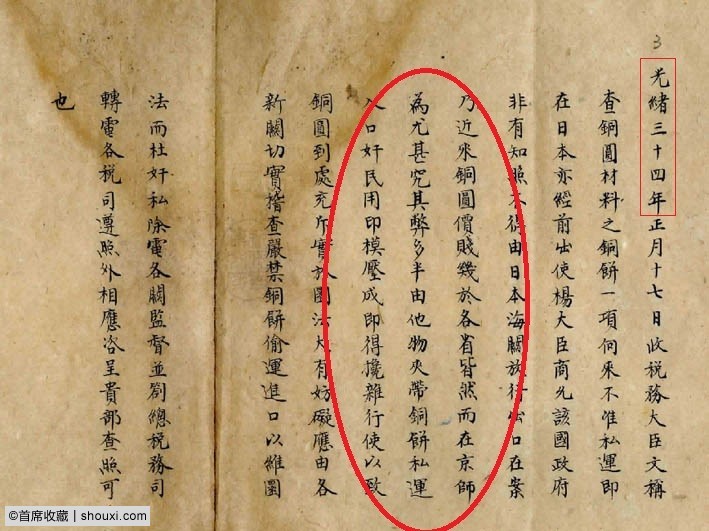 3
光緒三十四年正月十七日收稅務大臣文稱
查銅圓材料之銅餅一項向來不准私運即
在日本亦經前出使楊大臣商允該國政府
非有知照不得由日本海關放行出口在案
乃近來銅圓價賤幾於各省皆然而在京師
為尤甚究其弊多半由他物夾帶銅餅私運
入口奸民用印模壓成即得攙雜行使以致
銅圓到處充斥實於圜法大有妨礙應由各
新關切實稽查嚴禁銅餅偷運進口以維圜
法而杜奸私除電各關監督並劄總稅務司
轉電各稅司遵照外相應咨呈貴部查照可
也
©首席收藏 | shouxi.com